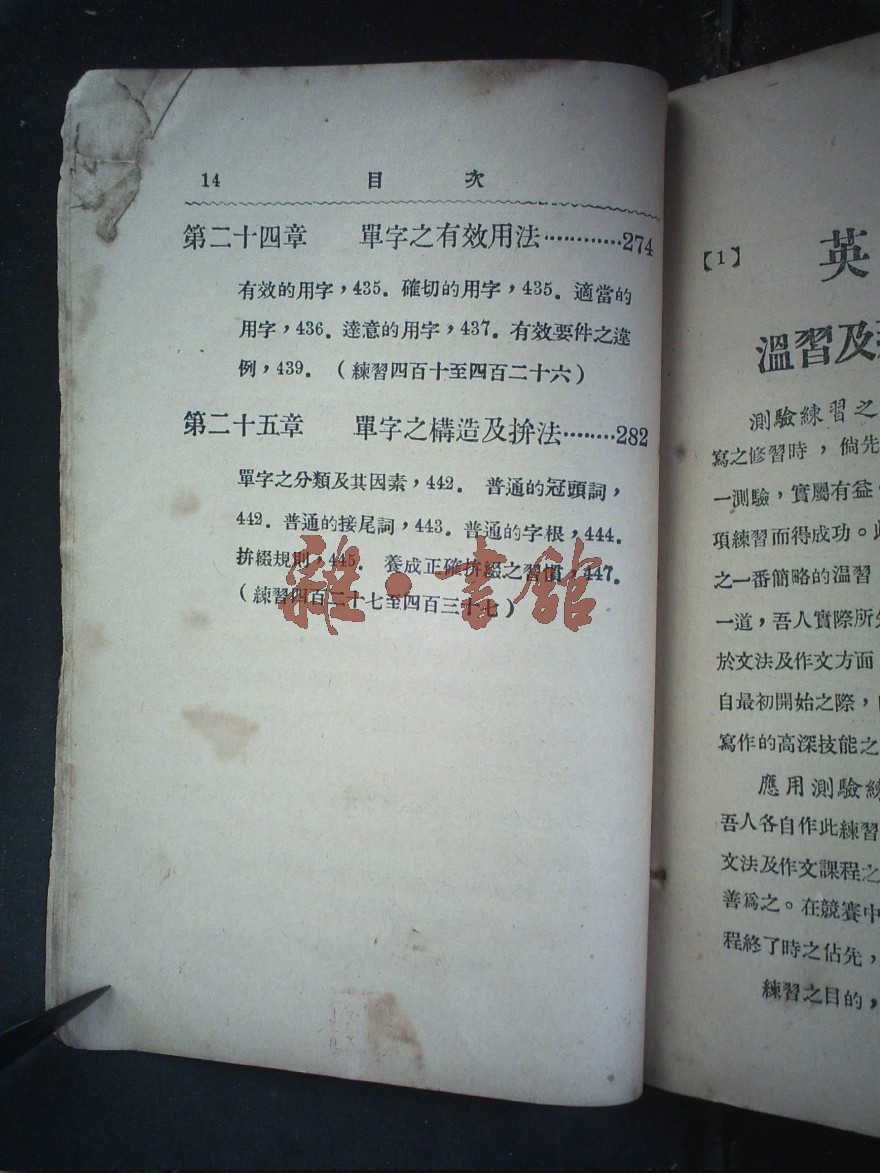 14 目 次
第二十四章 單字之有效用法…………274
有效的用字，435. 確切的用字，435. 適當的
用字，436. 達意的用字，437. 有效要件之違
例，439. (練習四百十至四百二十六)
第二十五章 單字之構造及拚法………282
單字之分類及其因素，442. 普通的冠頭詞，
442. 普通的接尾詞，443. 普通的字根，444.
拚綴規則，445. 養成正確拚綴之習慣，447.
(練習四百二十七至四百三十七)
雜·書館
【1】 英
溫習及
測驗練習之
寫之修習時，倘先
一測驗，實屬有益。
項練習而得成功。此
之一番簡略的溫習
一道，吾人實際所
於文法及作文方面
自最初開始之際，
寫作的高深技能之
應用測驗練
吾人各自作此練習
文法及作文課程之
善爲之。在競賽中
程終了時之佔先，
練習之目的，